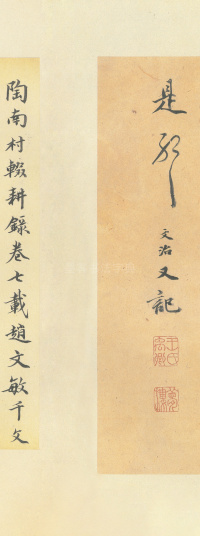 是耶
文治又記
陶南村輟耕錄卷七載趙文敏千文